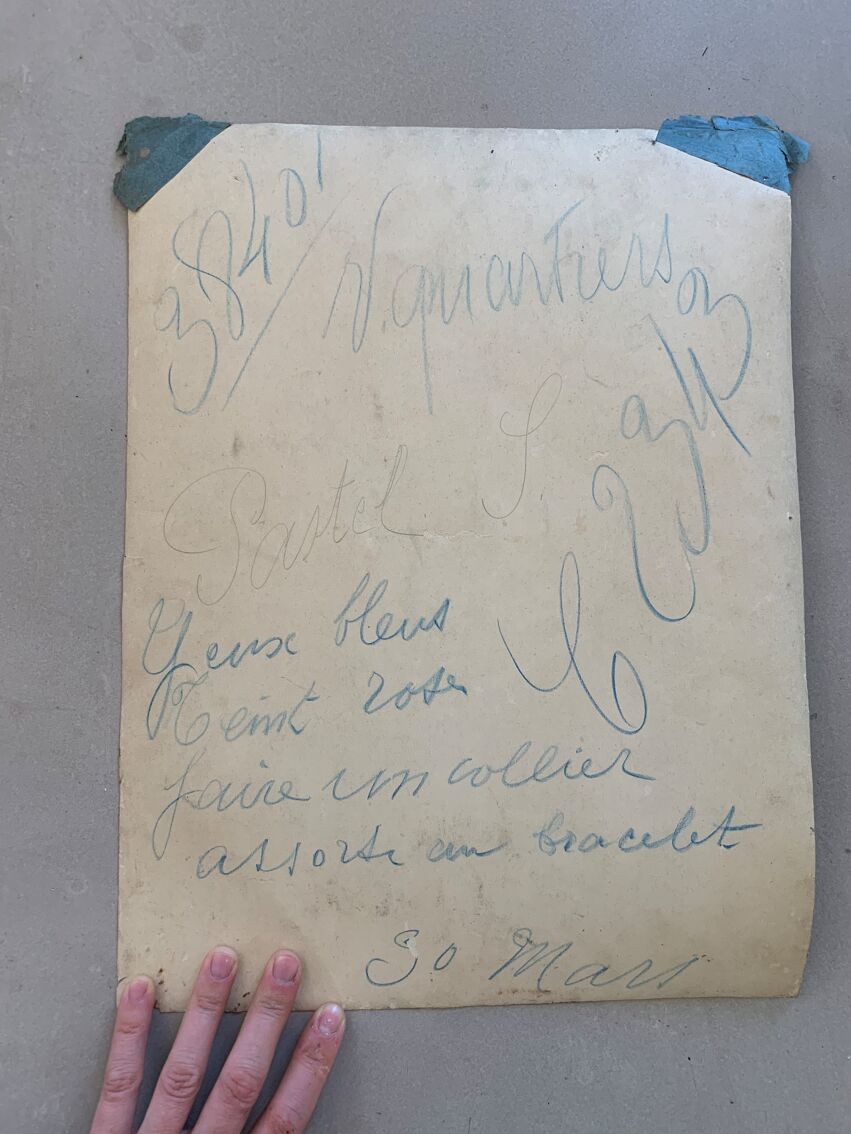 38401 / N. quartiers
Pastel S
Yeux bleus
Teint rose
faire un collier
assorti au bracelet
30 Mars